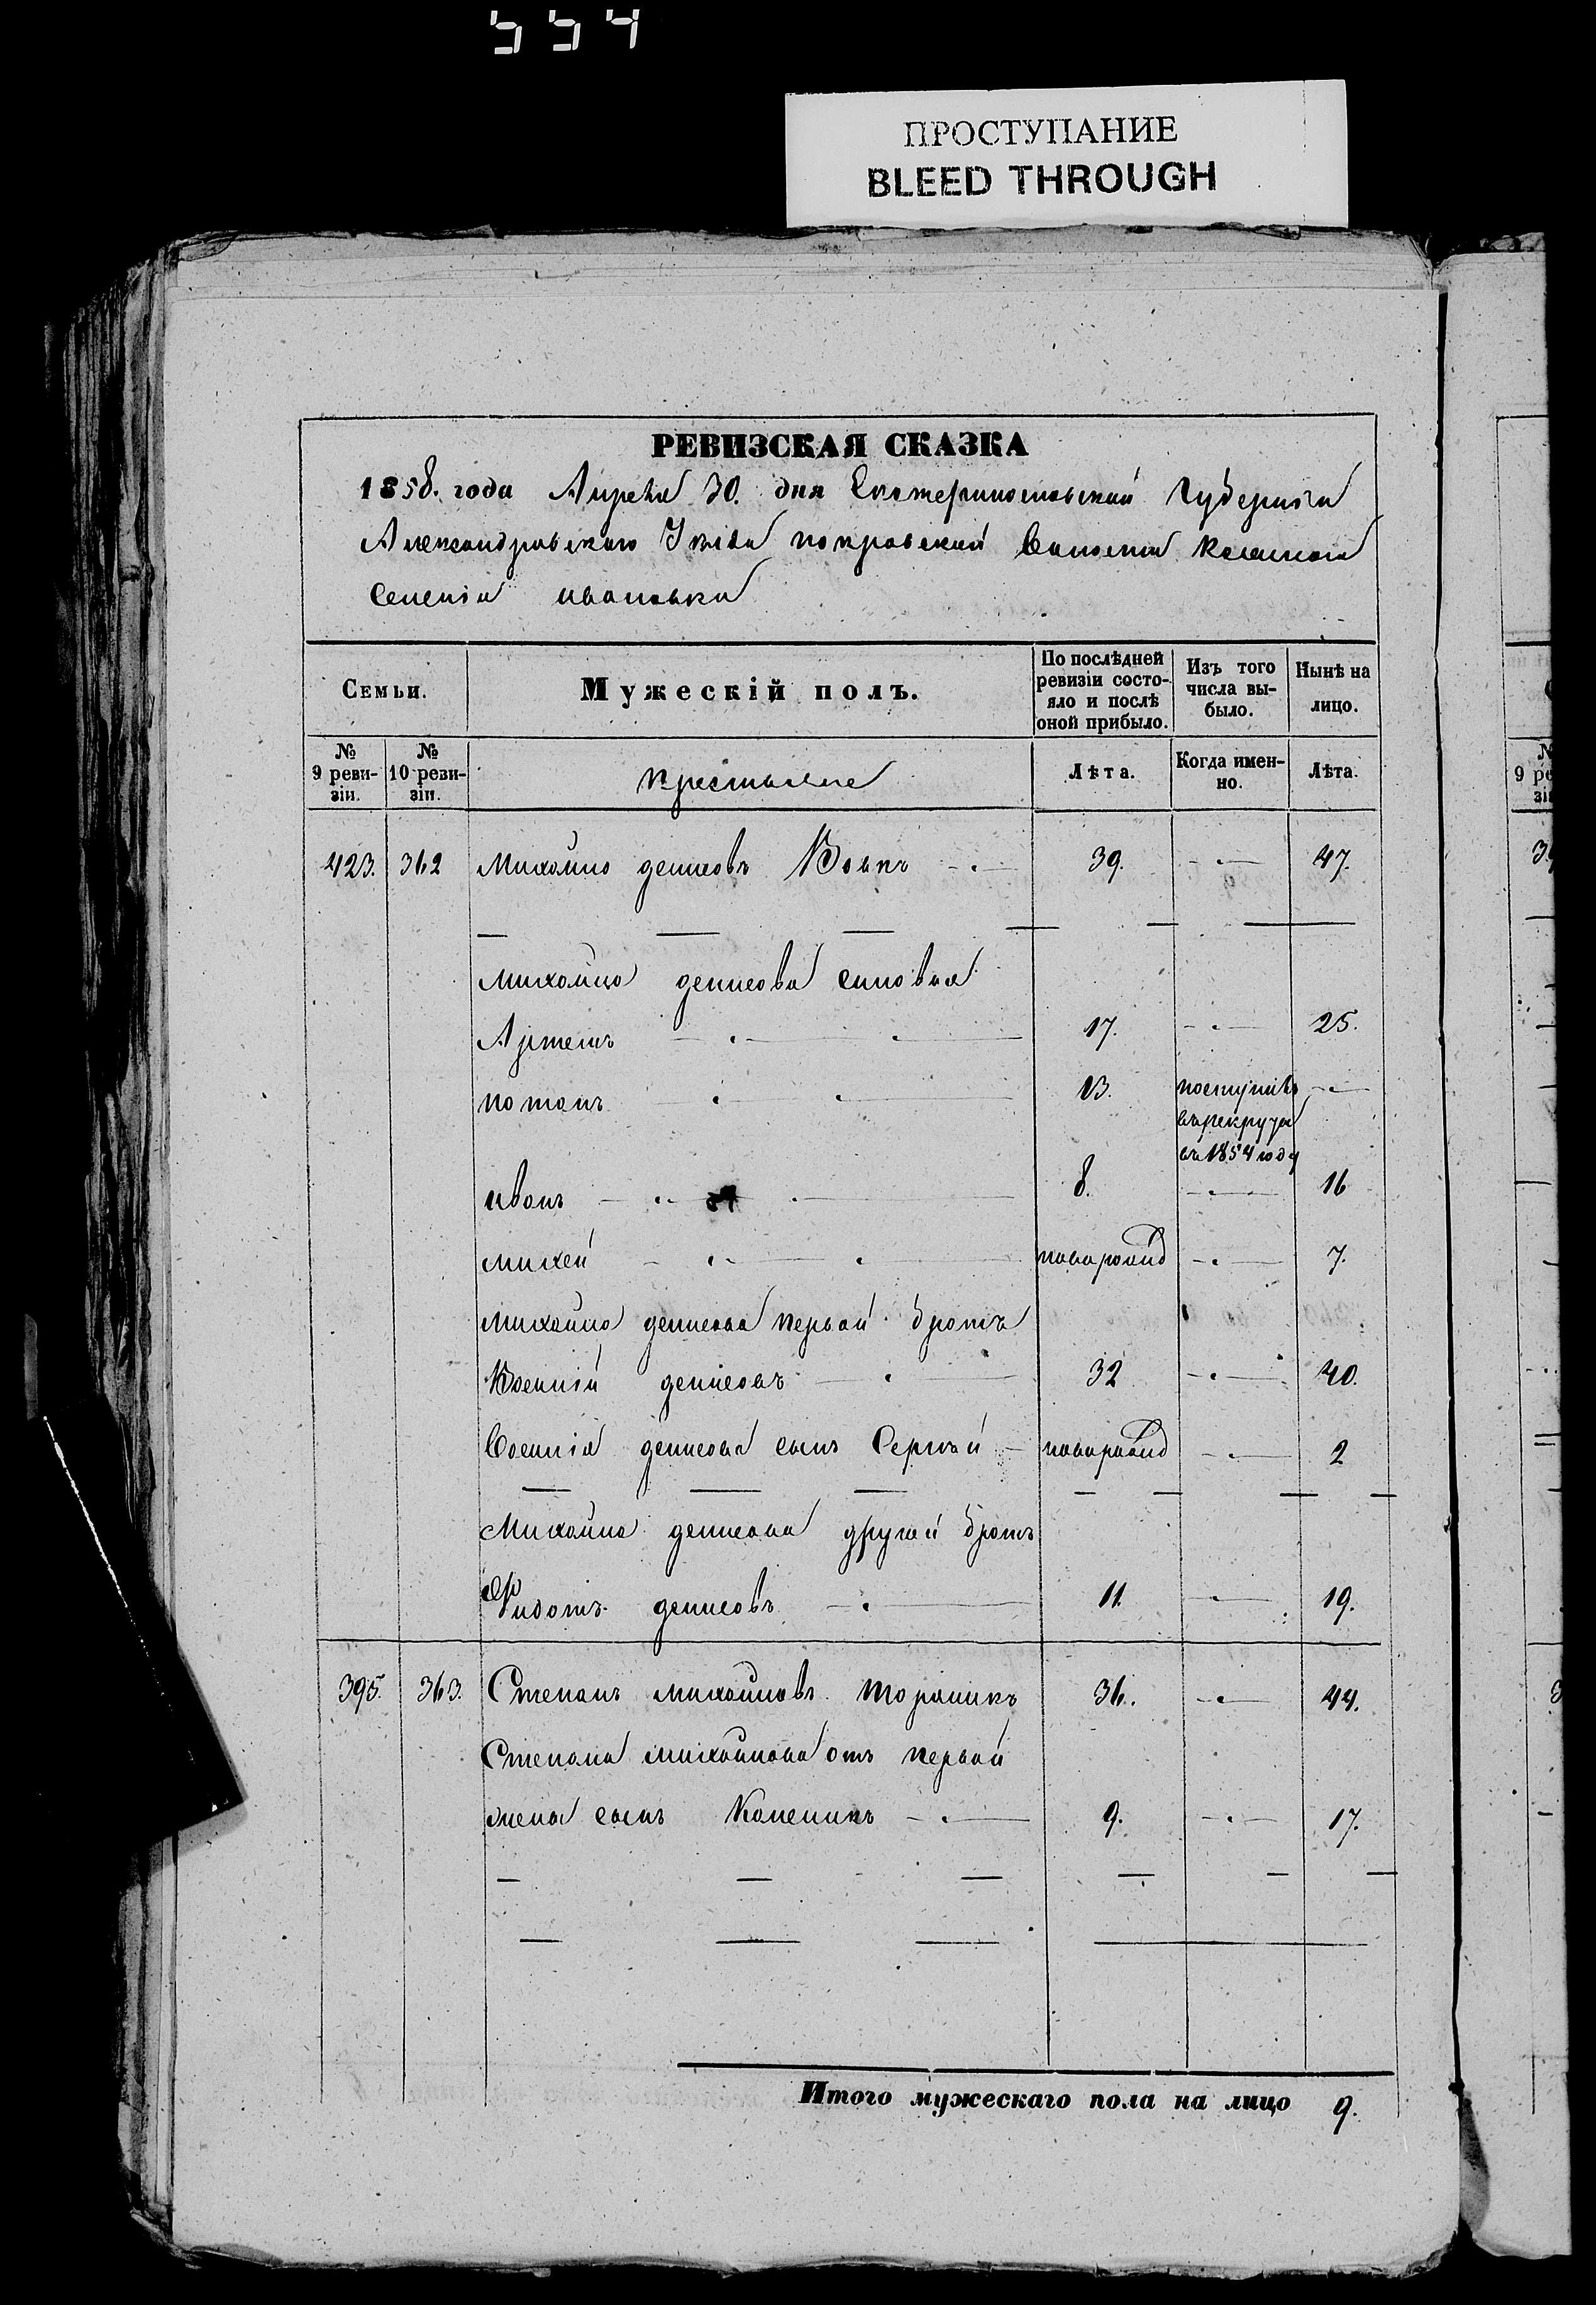 554
ПРОСТУПАНИЕ
BLEED THROUGH
РЕВИЗСКАЯ СКАЗКА
1858. года Апреля 30. дня Екатеринославской Губернiи
Александровскаго Уезда покровской Волости казеннаго
Селенiя ивановки
Семьи.
Мужескiй полъ.
По послѣдней ревизiи состо-яло и послѣ оной прибыло.
Изъ того числа вы-было.
Нынѣ на лицо.
№ 9 реви-зiи.
№ 10 реви-зiи.
крестьяне
Лѣта.
Когда имен-но.
Лѣта.
423. 362 Михайло денисовъ Вовкъ 39. 47.
Михайла денисова синовья
Артемъ 17. 25.
потапъ 13. поступивъ
въ рекруты
въ 1854 году
иванъ 8. 16
михей новорожд 7.
Михайла денисова первой братъ
Євсенiй денисовъ 32 40.
Євсенiя денисова сынъ Сергѣй новорожд 2
Михайла денисова другой братъ
Фидотъ денисовъ 11. 19.
395. 363. Степанъ михайловъ 36. 44.
Степана михайлова отъ первой
жены сынъ Каленикъ 9. 17.
Итого мужескаго пола на лицо 9.
9 ре